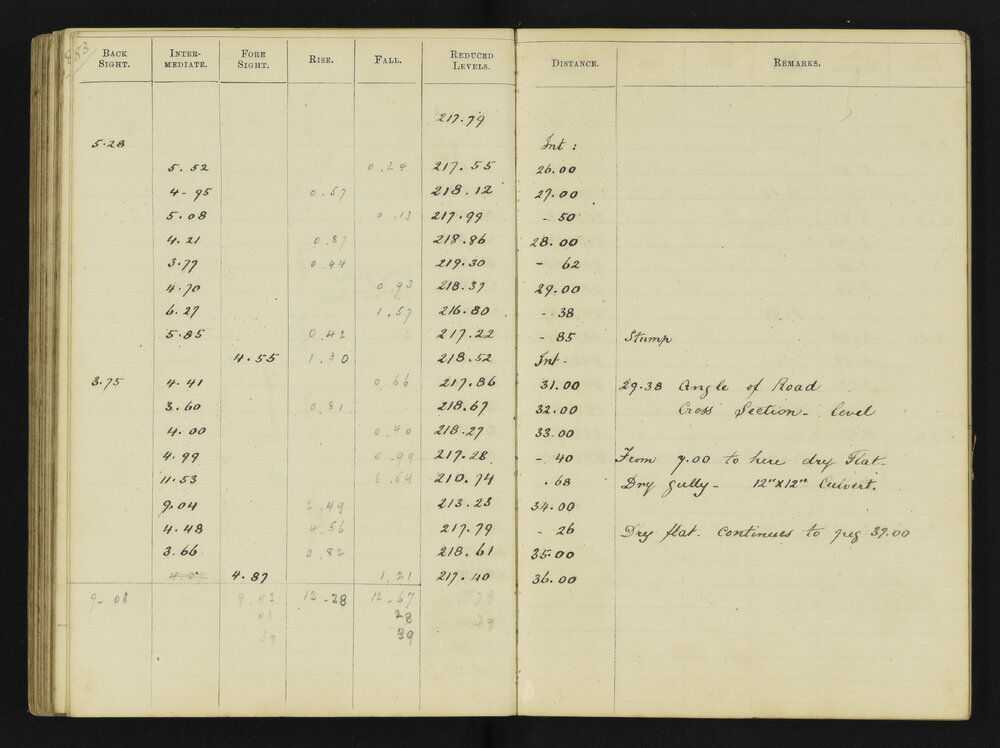 883
BACK SIGHT. INTER-MEDIATE. FORE SIGHT. RISE. FALL. REDUCED LEVELS. DISTANCE. REMARKS.
217.79
5.28 Int:
5.52 0.24 217.55 26.00
4-95 0.57 218.12 27.00
5.08 0.13 217.99 - 50
4.21 0.87 218.86 28.00
3.77 0.44 219.30 - 62
4.70 0.93 218.37 29.00
6.27 1.57 216.80 - 38
5.85 0.42 217.22 - 85 Stump
4.55 1.30 218.52 Int-
3.75 4.41 0.66 217.86 31.00 29.38 Angle of Road
3.60 0.81 218.67 32.00 Cross Section- level
4.00 0.40 218.27 33.00
4.99 0.99 217.28 - 40 From 7.00 to here dry Flat-
11.53 6.54 210.74 .68 Dry gully- 12"x12" Culvert.
9.04 2.49 213.23 34.00
4.48 4.56 217.79 - 26 Dry flat. continues to peg 39.00
3.66 0.82 218.61 35.00
4.87 4.87 1.21 217.40 36.00
9-03 9.42 12-28 12-67 79
03 28 39
39 39